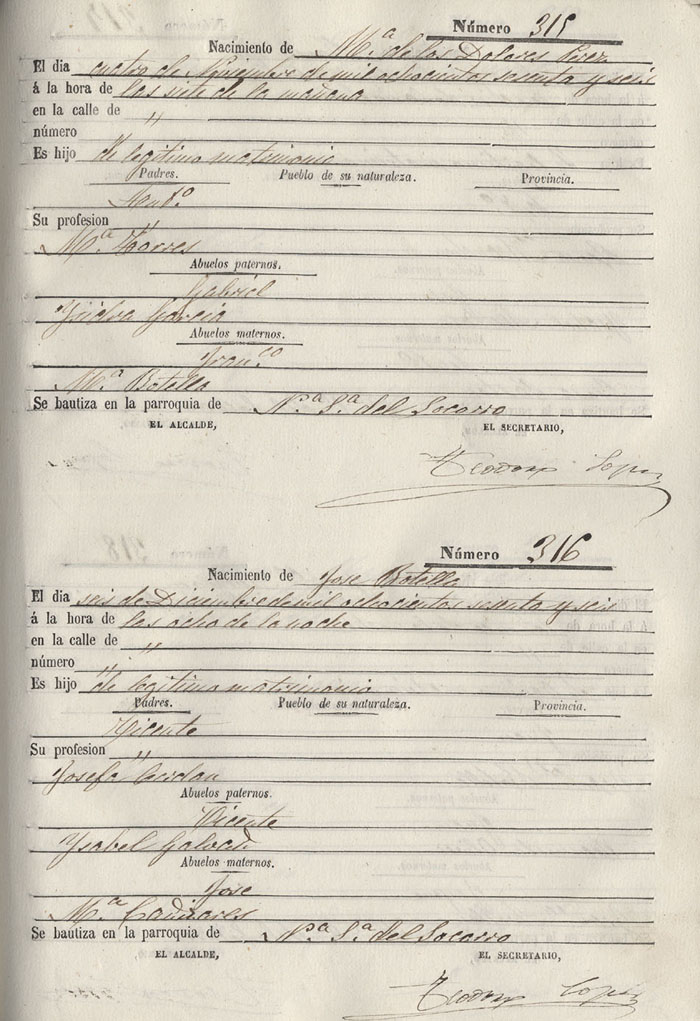 Número 315
Nacimiento de Mª de los Dolores Perez
El dia cuatro de Noviembre de mil ochocientos sesenta y seis
á la hora de las siete de la mañana
en la calle de "
número
Es hijo de legitimo matrimonio
Padres. Pueblo de su naturaleza. Provincia.
Antº
Su profesion "
Mª Torres
Abuelos paternos.
Gabriel
Ysidra Garcia
Abuelos maternos.
Francº
Mª Botella
Se bautiza en la parroquia de Nª Sª del Socorro
EL ALCALDE, EL SECRETARIO,
Teodoro Lopez
Número 316
Nacimiento de Jose Botella
El dia seis de Diciembre de mil ochocientos sesenta y seis
á la hora de las ocho de la noche
en la calle de "
número "
Es hijo de legitimo matrimonio
Padres. Pueblo de su naturaleza. Provincia.
Vicente
Su profesion "
Josefa
Abuelos paternos.
Vicente
Ysabel
Abuelos maternos.
Jose
Mª Cañizares
Se bautiza en la parroquia de Nª Sª del Socorro
EL ALCALDE, EL SECRETARIO,
Teodoro Lopez